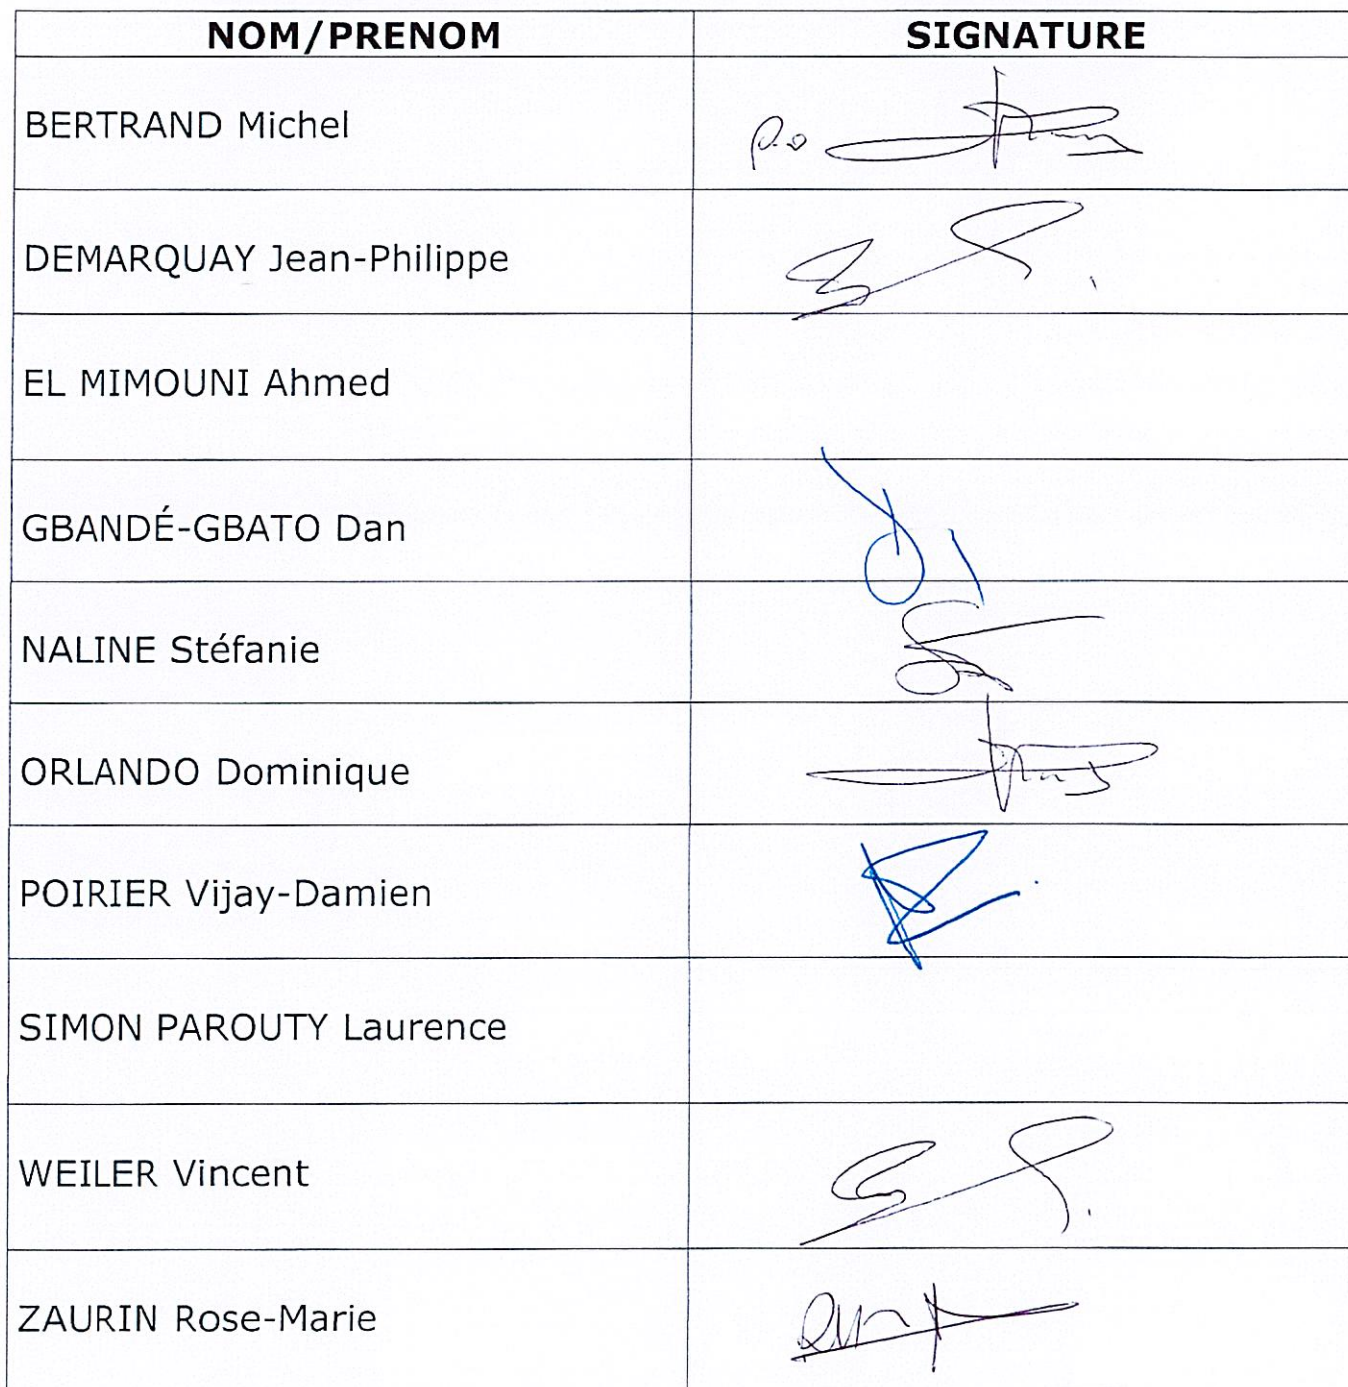 NOM/PRENOM SIGNATURE
BERTRAND Michel p.o
DEMARQUAY Jean-Philippe
EL MIMOUNI Ahmed
GBANDÉ-GBATO Dan
NALINE Stéfanie
ORLANDO Dominique
POIRIER Vijay-Damien
SIMON PAROUTY Laurence
WEILER Vincent
ZAURIN Rose-Marie